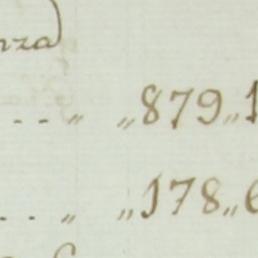 nza)
... „ „879„1
... „ „178„6